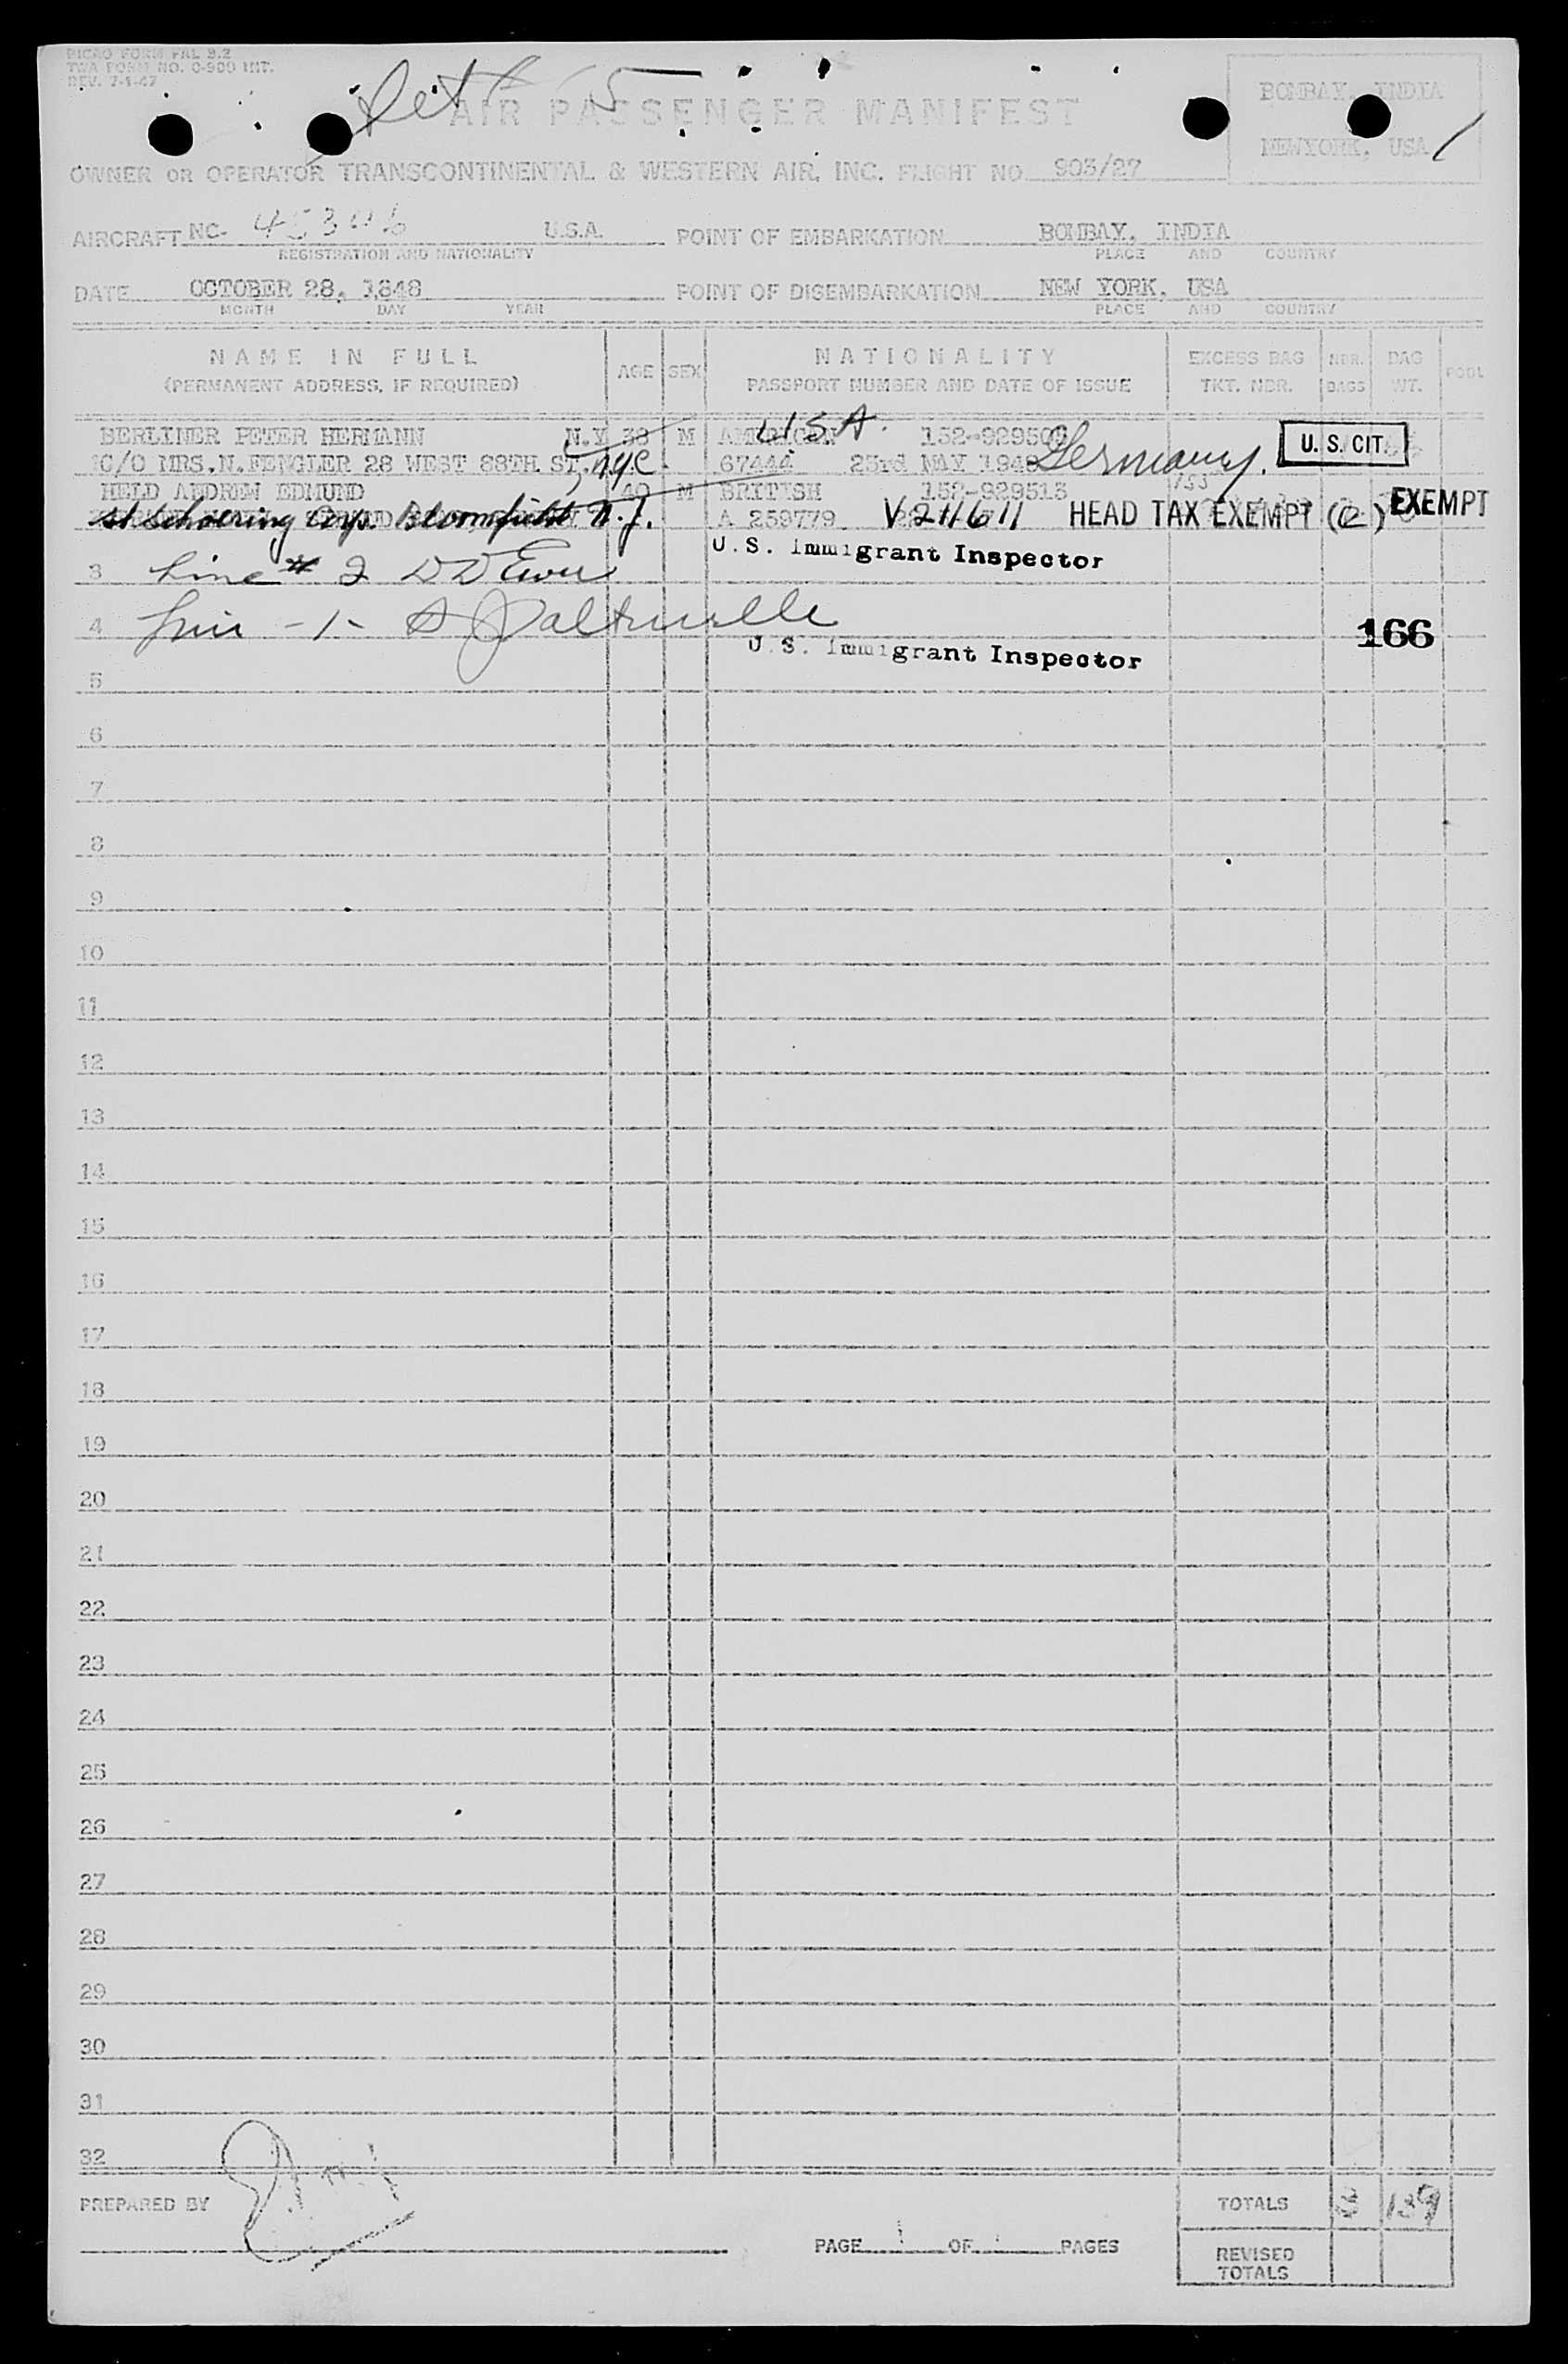 PICAO FORM FAL 9.2
TWA FORM NO. O-900 INT.
REV. 7-1-47
AIR PASSENGER MANIFEST
BOMBAY, INDIA
NEWYORK, USA
OWNER OR OPERATOR TRANSCONTINENTAL & WESTERN AIR, INC. FLIGHT NO 903/27
AIRCRAFT NC- U.S.A. POINT OF EMBARKATION BOMBAY, INDIA
REGISTRATION AND NATIONALITY PLACE AND COUNTRY
DATE OCTOBER 28, 1848 POINT OF DISEMBARKATION NEW YORK, USA
MONTH DAY YEAR PLACE AND COUNTRY
NAME IN FULL AGE SEX NATIONALITY EXCESS BAG NBR. BAG POOL
(PERMANENT ADDRESS, IF REQUIRED) PASSPORT NUMBER AND DATE OF ISSUE TKT. NBR. BAGS WT.
BERLINER PETER HERMANN N.Y 38 M AMERICAN USA. U. S. CIT.
C/O MRS.N.FENGLER 28 WEST 88TH ST, NYC. 67444 23rd MAY 1948 Germany.
HELD ANDREW EDMUND 40 M BRITISH 152-929513
Corp. Bloomfield N.J. A 259779 V 211611 HEAD TAX EXEMPT EXEMPT
U.S. Immigrant Inspector
3 Line # 2
4 166
U.S. Immigrant Inspector
5
6
7
8
9
10
11
12
13
14
15
16
17
18
19
20
21
22
23
24
25
26
27
28
29
30
31
32
PREPARED BY TOTALS 3 139
PAGE 1 OF PAGES
REVISED
TOTALS